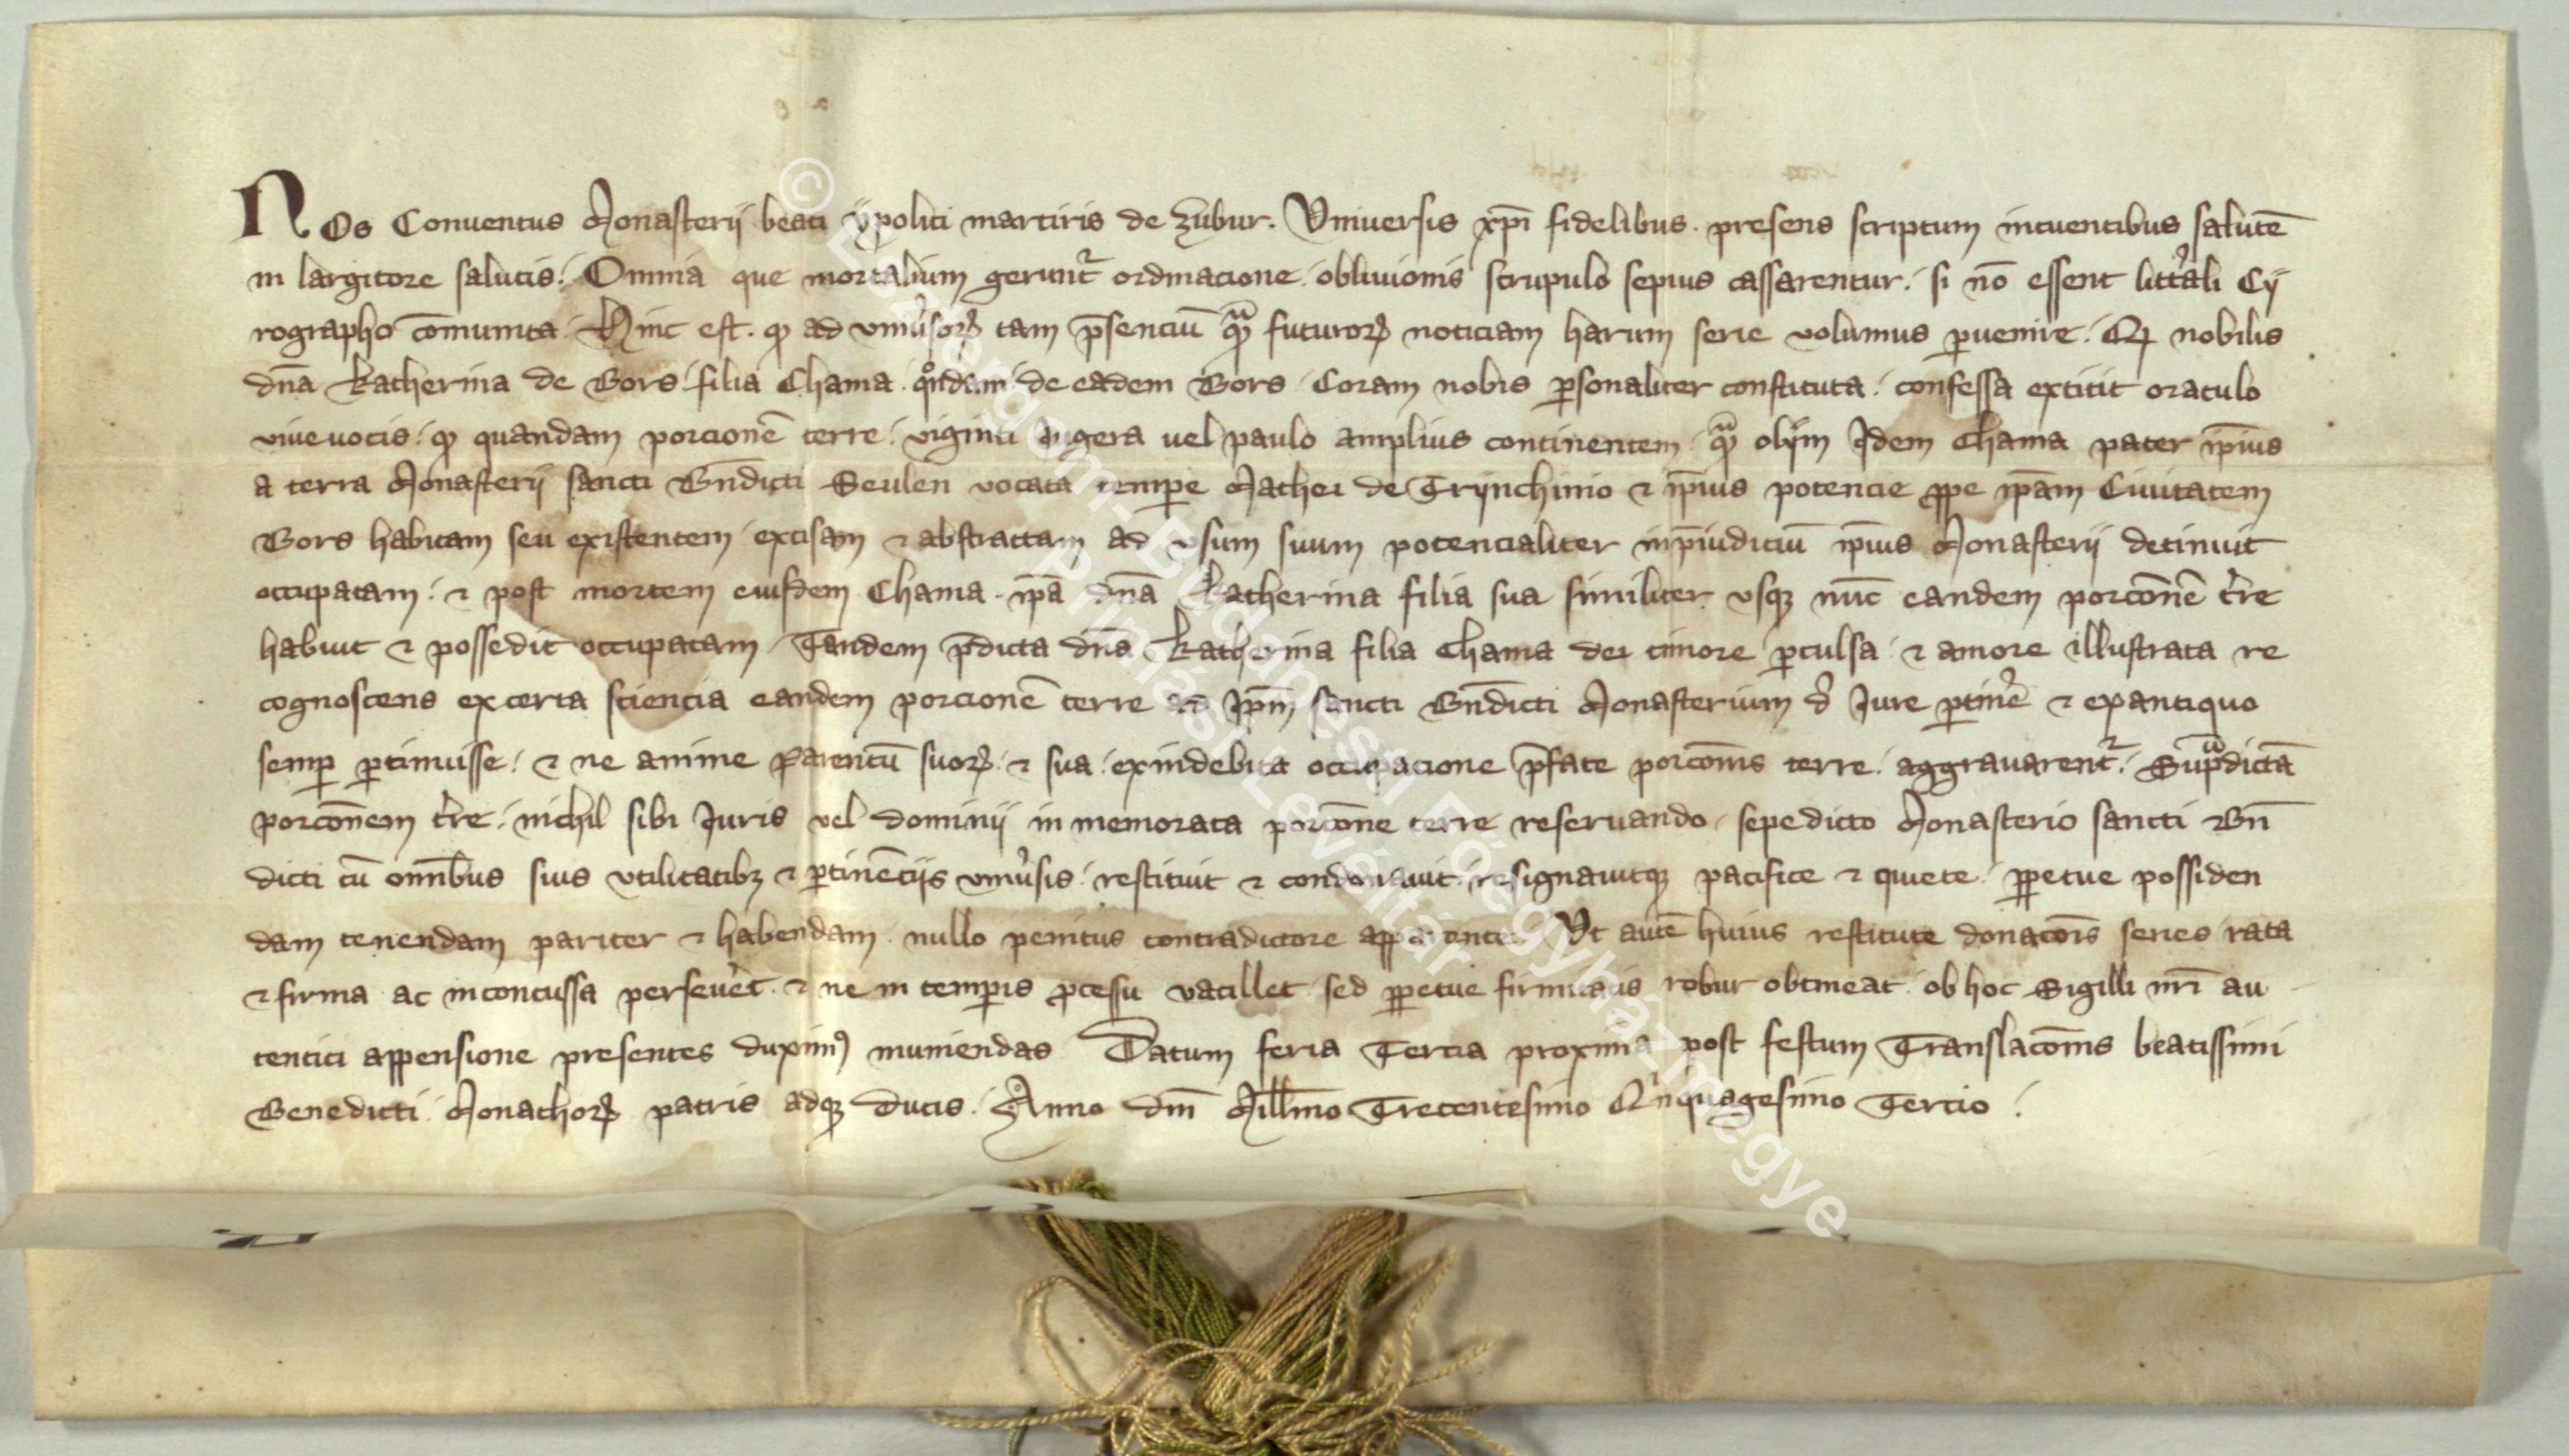 NOs Conuentus Monasterii beati ypoliti martiris de Zubur. Vniuersis xp̄i fidelibus. presens scriptum intuentibus salutē
in largitore salutis. Omnia que mortalium gerunt᷑ ordinacione. obliuionis scrupulo sepius cassarentur. si nō essent litt̓ali Cy
rographo cōmunita. Hinc est. ꝙ ad vniu̓soꝝ tam p̄senciū qᵃ̄ futuroꝝ noticiam harum serie volumus ꝑuenire. Qꝫ nobilis
dn̄a Katherina de Bors. filia Chama. qͦndam de eadem Bors. Coram nobis ꝑsonaliter constituta. confessa extitit oraculo
viue vocis. ꝙ quandam porcionē terre. viginti Iugera uel paulo amplius continentem. qᵃ̄ olym Idem Chama pater ip̄ius
a terra Monasterii sancti Bn̄dicti Seulen vocata temꝑe Mathei de Trynchinio ⁊ ip̄ius potencie ꝓpe ip̄am Ciuitatem
Bors habitam seu existentem excisam ⁊ abstractam ad vsum suum potencialiter in p̄iudiciū ip̄ius Monasterii detinuit
occupatam. ⁊ post mortem eiusdem Chama. ip̄a dn̄a Katherina filia sua similiter vsqꝫ nūc eandem porcōnē t̓re
habuit ⁊ possedit occupatam. Tandem p̄dicta dn̄a Katherina filia Chama dei timore ꝑculsa. ⁊ amore illustrata re
cognoscens ex certa sciencia eandem porcionē terre ad Ip̄m sancti Bn̄dicti Monasterium d̓ Iure ꝑtin̓e ⁊ ex antiquo
semꝑ ꝑtinuisse. ⁊ ne anime Parentū suoꝝ. ⁊ sua. ex indebita occupacione p̄fate porcōnis terre. aggrauarent᷑. Supᵃdictā
porcōnem t̓re. nichil sibi Iuris vel dominii in memorata porcōne terre reseruando. sepedicto Monasterio sancti Bn̄
dicti cū omībus suis vtilitatibꝫ ⁊ ꝑtinēciis vniu̓sis. restituit ⁊ condonauit. resignauitqꝫ pacifice ⁊ quiete. ꝑpetue possiden
dam tenendam pariter ⁊ habendam. nullo penitus contradictore apparente. Vt autē huius restitute donacōis series rata
⁊ firma ac inconcussa perseu̓et. ⁊ ne in temꝑis ꝓcessu vacillet. sed ꝑpetue firmitatis robur obtineat. ob hoc Sigilli nr̄i au
tentici appensione presentes duximꝰ muniendas Datum feria Tercia proxima post festum Translacōnis beatissimi
Benedicti. Monachoꝝ patris adqꝫ Ducis. Anno dn̄i Mill̄mo Trecentesimo Qͥnquagesimo Tercio.
© Esztergom-Budapesti Főegyházmegye
Prímási Levéltár